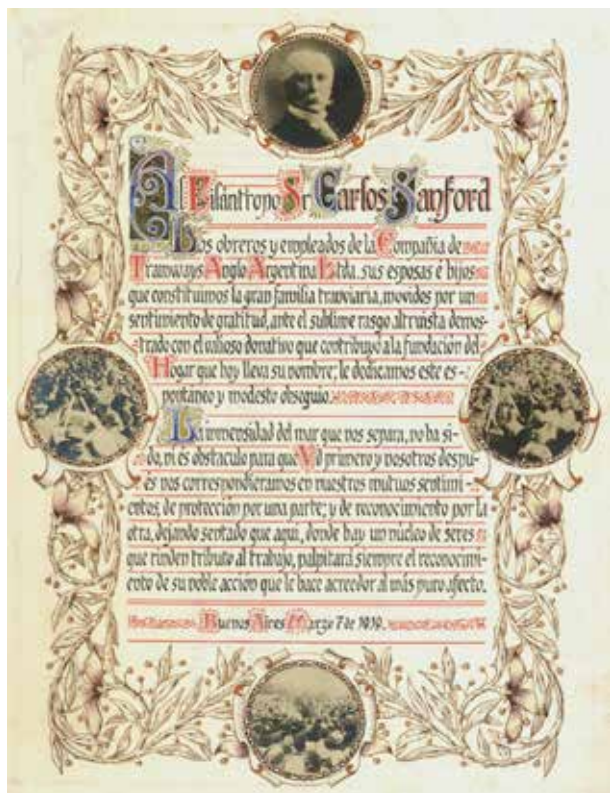 Al Filántropo Sr Carlos Sanford
Los obreros y empleados de la Compañia de
Tramways Anglo Argentina Ltda. sus esposas é hijos
que constituimos la gran familia tranviaria, movidos por un
sentimiento de gratitud, ante el sublime rasgo altruista demos-
trado con el valioso donativo que contribuyó a la fundación del
Hogar que hoy lleva su nombre; le dedicamos este es-
pontáneo y modesto obsequio.
La inmensidad del mar que nos separa, no ha si-
do, ni es obstaculo para que Vd primero y nosotros despu-
és nos correspondieramos en nuestros mutuos sentimi-
entos, de protección por una parte; y de reconocimiento por la
otra, dejando sentado que aqui, donde hay un núcleo de seres
que rinden tributo al trabajo, palpitará siempre el reconocimi-
ento de su noble acción que le hace acreedor al más puro afecto.
Buenos Aires Marzo 7 de 1919.